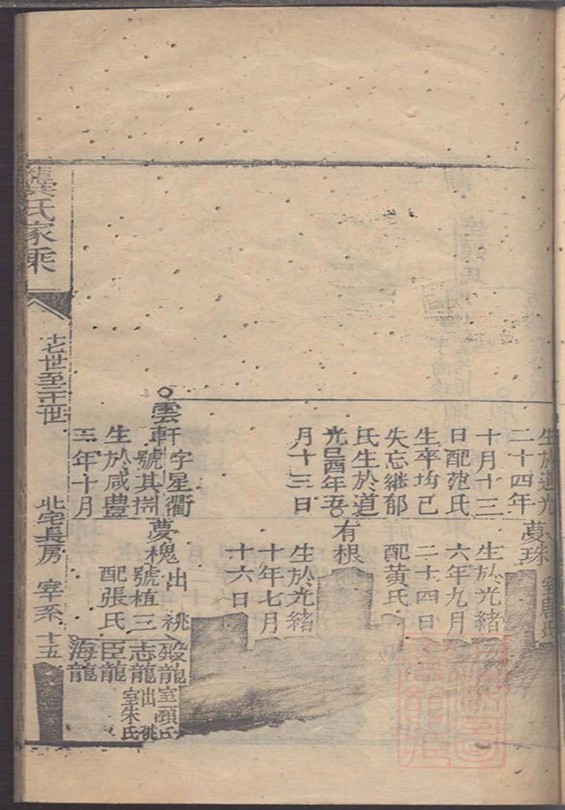 生於道光
二十四年
十月十三
日配范氏
生卒均已
失忘継郁
氏生於道
光己酉年五
月十三日
夢球
生於光緒
六年九月
二十四日
配黃氏
有根
生於光緒
十年七月
十六日
雲軒字星衢
號其樹
生於咸豊
三年十月
夢槐出祧
號植三
配張氏
毀龍室頭氏
志龍出祧室朱氏
臣龍
海龍
龔氏家乘
十七世至二十世
北宅長房 宰系 十五